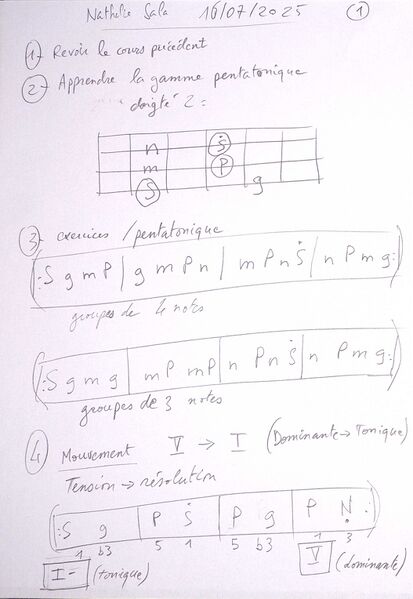 Nathalie Sala 16/07/2025 1
1- Revoir le cours précédent
2- Apprendre la gamme pentatonique
doigté 2 :
n Ṡ
m P
S g
3- exercices / pentatonique
S g m P | g m P n | m P n Ṡ | n P m g
groupes de 4 notes
S g m g | m P m P | n P n Ṡ | n P m g
groupes de 3 notes
4 Mouvement V → I (Dominante → Tonique)
Tension → résolution
S g | P Ṡ | P g | P N
1 b3 5 1 5 b3 1 3
I- (tonique) V (dominante)